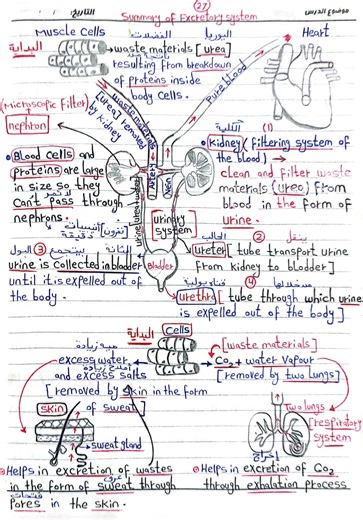 موضوع الدرس
التاريخ
(27)
Summary of Excretory system
Muscle Cells
الفضلات
البوريا
Heart
البداية
waste materials [urea]
resulting from breakdown
of proteins inside
body cells.
Pure blood
waste materials
[urea] removed
by kidney
(Microscopic filter)
nephron
الكلية
(1)
kidney (filtering system of
the blood)
clean and filter waste
materials (urea) from
blood in the form of
urine.
Artery
Vein
• Blood cells and
proteins are large
in size so they
Can't pass through
nephrons.
urinary
system
الحالب
(2)
ينقل
ureter [tube transport urine
from kidney to bladder]
المثانة
يتجمع
البول
(3)
urine is collected in bladder
until it is expelled out of
the body.
Bladder
(4)
urethra [tube through which urine
is expelled out of the body]
البداية
Cells
مياه زيادة
excess water
املاح زيادة
and excess salts
[removed by skin in the form
of sweat]
[waste materials]
Co₂ + water vapour
[removed by two lungs]
skin
sweat gland
Two lungs
respiratory
system
Helps in excretion of wastes
in the form of sweat through
عرق
فتحات
Pores in the skin.
إخراج
Helps in excretion of Co₂
through exhalation process